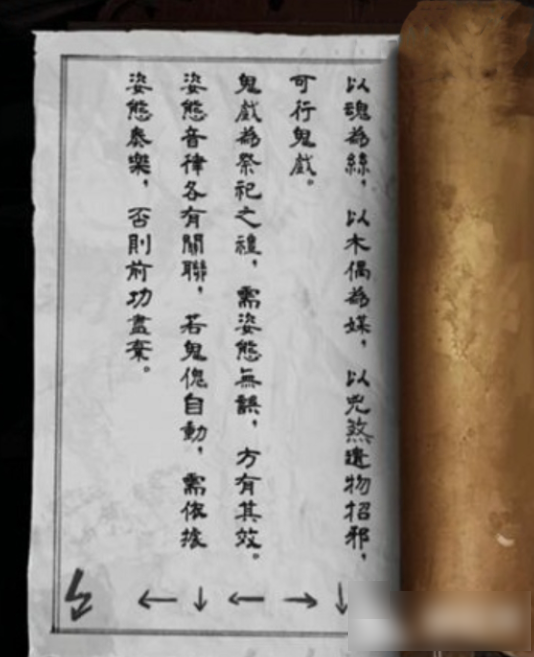 以魂為絲，以木偶為媒，以兇煞遺物招邪，
可行鬼戲。
鬼戲為祭祀之禮，需姿態無誤，方有其效。
姿態音律各有關聯，若鬼傀自動，需依據
姿態奏樂，否則前功盡棄。
↓ → ← ↓ ←